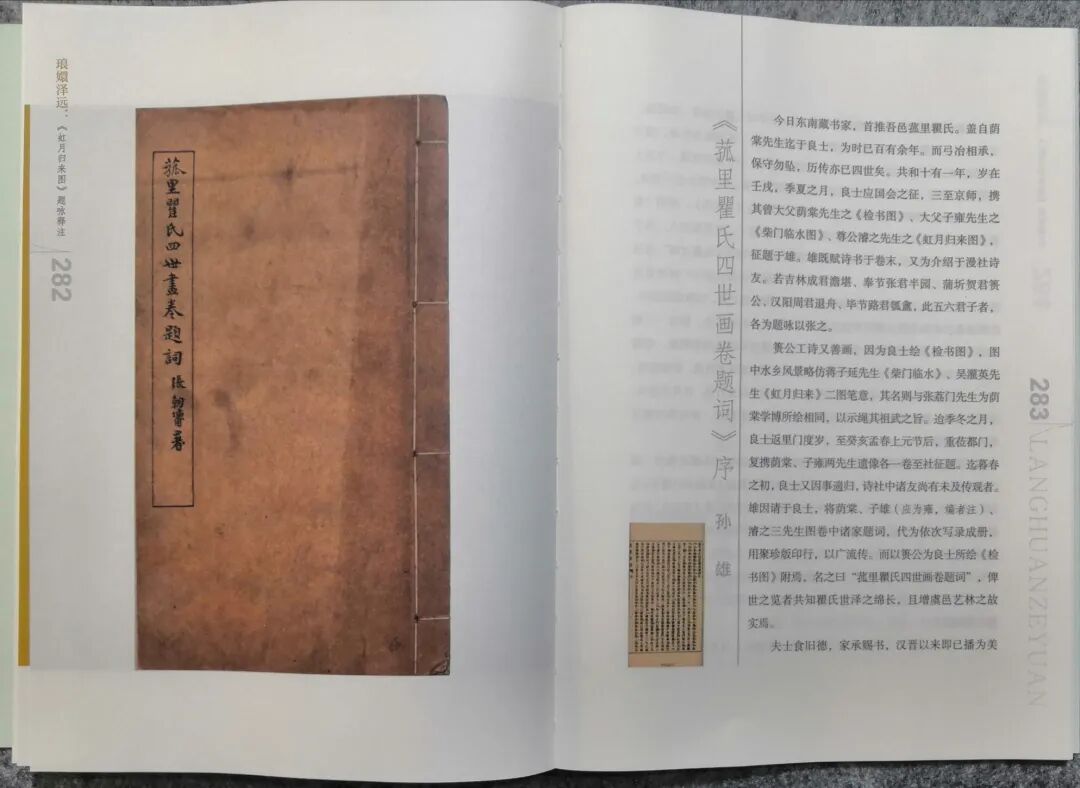 琅嬛泽远：《虹月归来图》题咏释注
282
菰里瞿氏四世畫卷題詞 張朝墉署
《菰里瞿氏四世画卷题词》序
孙雄
今日东南藏书家，首推吾邑菰里瞿氏。盖自荫
棠先生迄于良士，为时已百有余年。而弓冶相承，
保守勿坠，历传亦已四世矣。共和十有一年，岁在
壬戌，季夏之月，良士应国会之征，三至京师，携
其曾大父荫棠先生之《检书图》、大父子雍先生之
《柴门临水图》、尊公濬之先生之《虹月归来图》，
征题于雄。雄既赋诗书于卷末，又为介绍于漫社诗
友。若吉林成君澹堪、奉节张君半园、蒲圻贺君篑
公、汉阳周君退舟、毕节路君瓠盦，此五六君子者，
各为题咏以张之。
篑公工诗又善画，因为良士绘《检书图》，图
中水乡风景略仿蒋子延先生《柴门临水》、吴灌英先
生《虹月归来》二图笔意，其名则与张荔门先生为荫
棠学博所绘相同，以示绳其祖武之旨。迨季冬之月，
良士返里门度岁，至癸亥孟春上元节后，重莅都门，
复携荫棠、子雍两先生遗像各一卷至社征题。迄暮春
之初，良士又因事遄归，诗社中诸友尚有未及传观者。
雄因请于良士，将荫棠、子雄（应为雍，编者注）、
濬之三先生图卷中诸家题词，代为依次写录成册，
用聚珍版印行，以广流传。而以篑公为良士所绘《检
书图》附焉，名之曰“菰里瞿氏四世画卷题词”，俾
世之览者共知瞿氏世泽之绵长，且增虞邑艺林之故
实焉。
夫士食旧德，家承赐书，汉晋以来即已播为美
283
LANGHUANZEYUAN